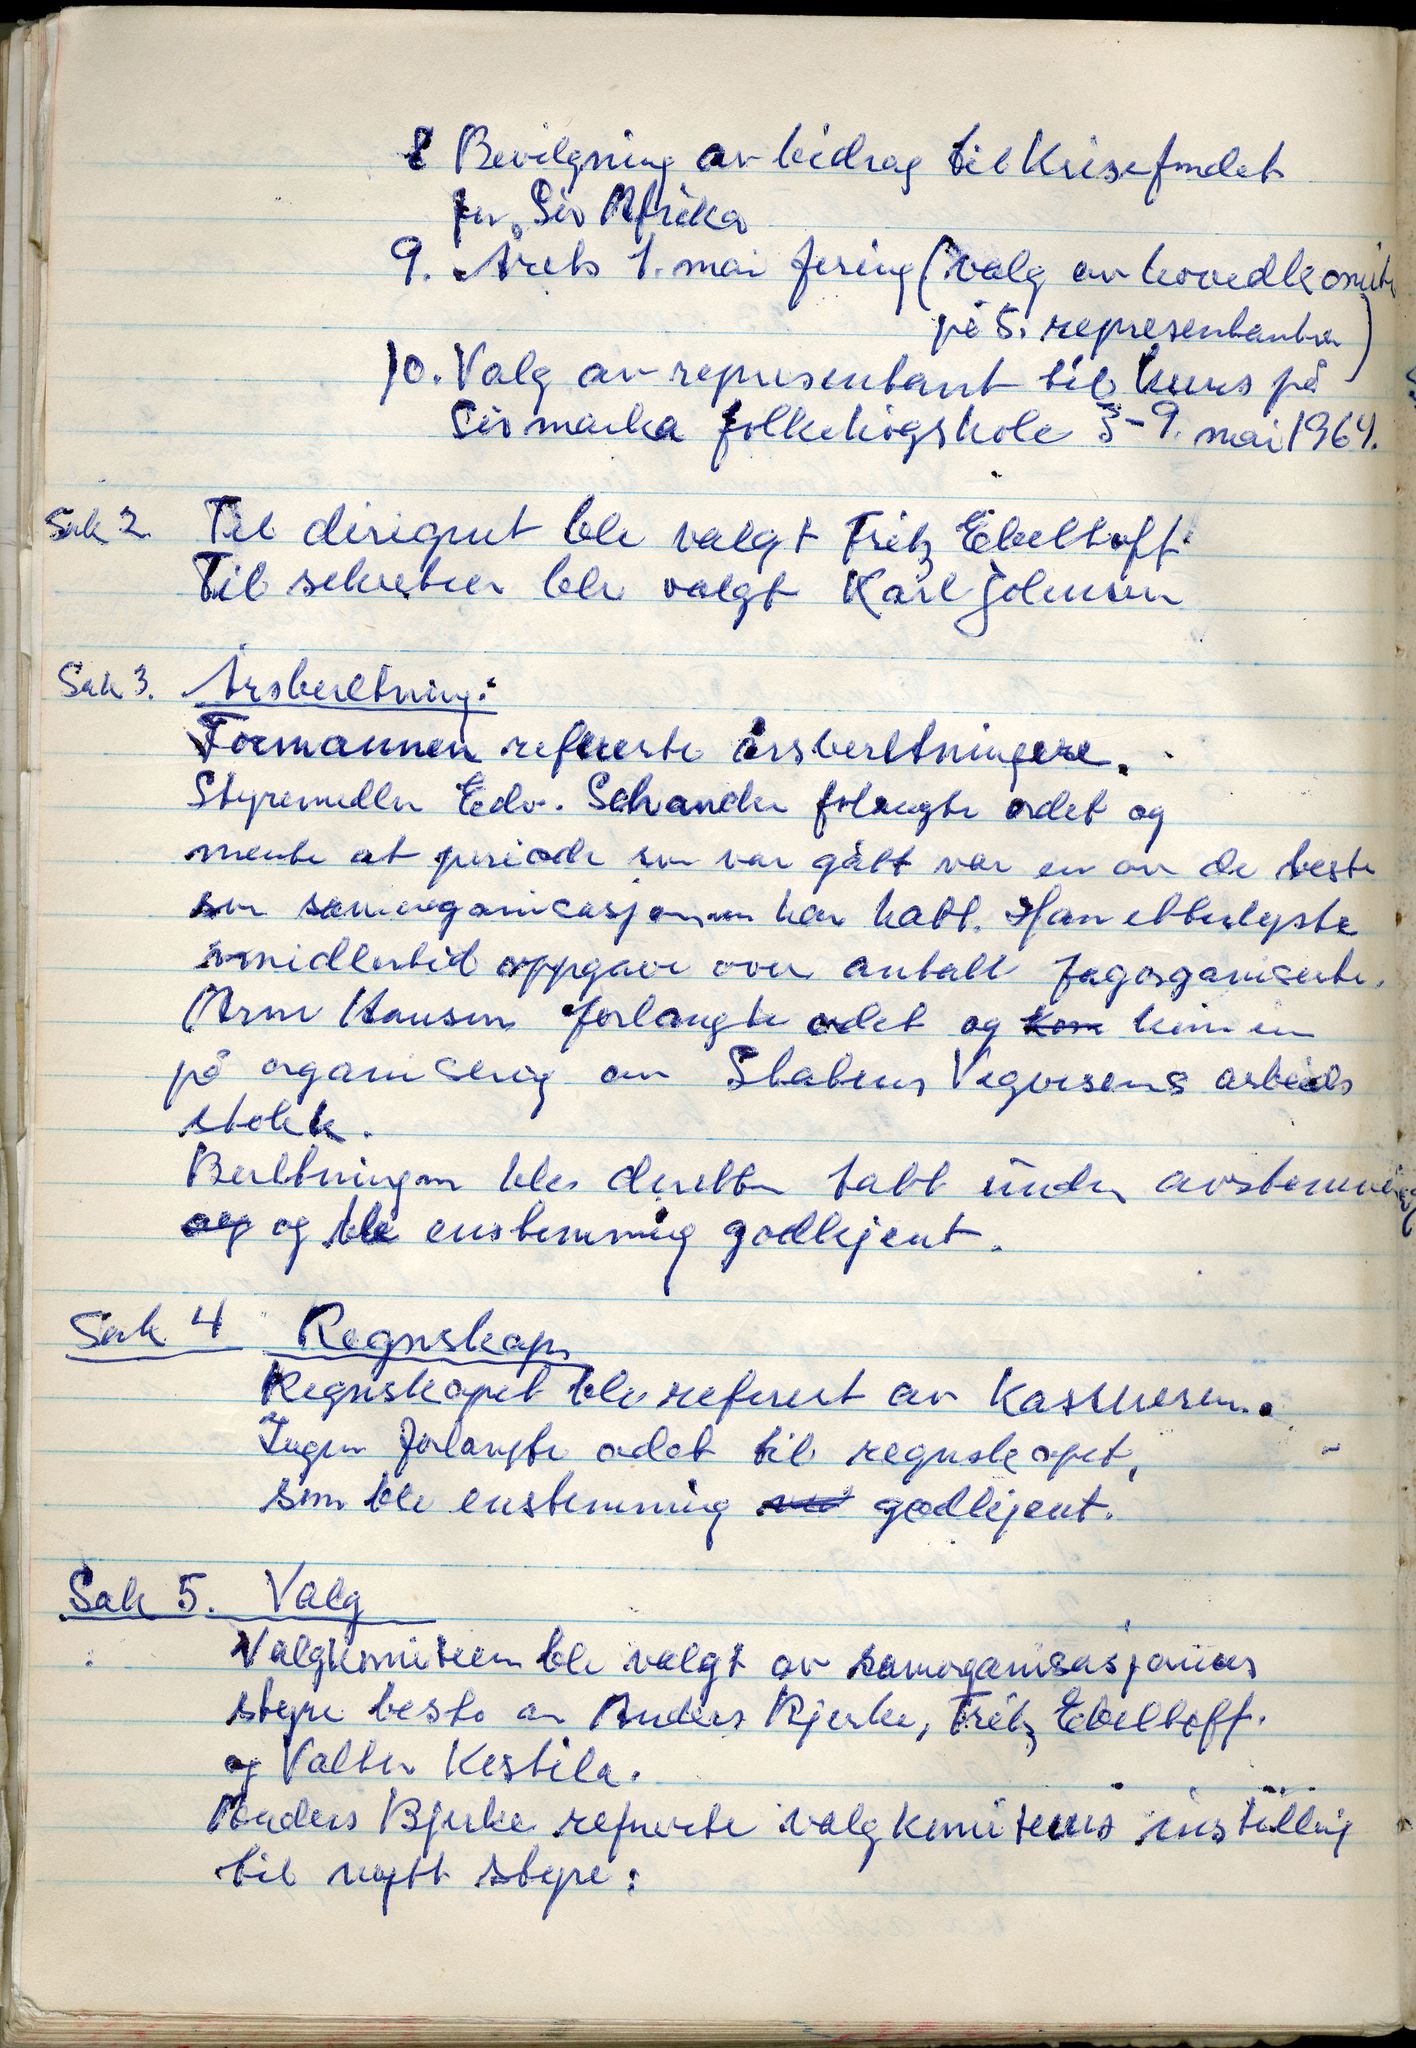 8 Bevilgning av bidrag til Krisefondet
for Sør Afrika
9. Årets 1. mai fering (valg av hovedkomite
på 5. representanter)
10. Valg av representant til kurs på
Sørmarka folkehøgskole 3-9. mai 1964.
Sak 2. Til dirigent ble valgt Fritz Ebeltoft.
Til sekretær ble valgt Karl Johnsen
Sak 3. Årsberetning:
Formannen refererte årsberetningene.
Styremedlem Edv. Schander forlangte ordet og
mente at periode som var gått var en av de beste
som samorganisasjonen har hatt. Han etterlyste
imidlertid oppgave over antall fagorganiserte.
Arne Hansen forlangte ordet og kom kom inn
på organisering av Statens Vegvesens arbeids
stokk.
Beretningen ble deretter tatt under avstemning
og og ble enstemmig godkjent.
Sak 4 Regnskap
Regnskapet ble referert av Kassereren.
Ingen forlangte ordet til regnskapet,
som ble enstemmig godkjent.
Sak 5. Valg
Valgkomiteen ble valgt av samorganisasjonens
styre besto av Anders Bjerke, Fritz Ebeltoft.
og Valter Kestila.
Anders Bjerke refererte valgkomiteens instilling
til nytt styre: